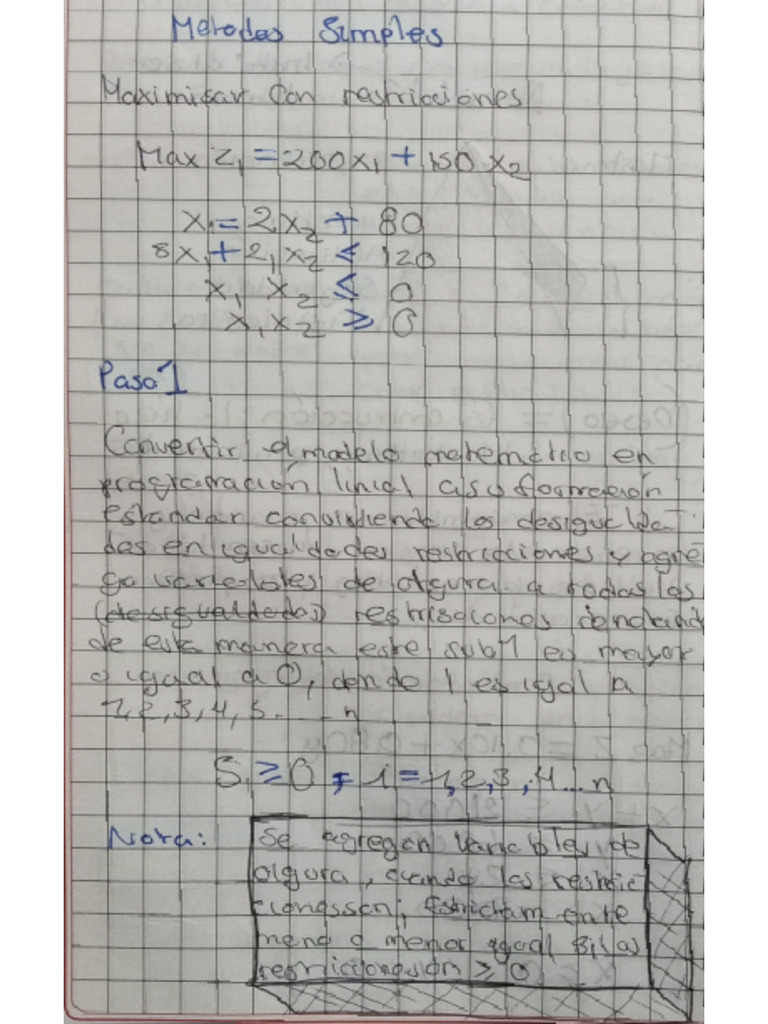 Metodos Simples
Maximisar Con restricciones
Max Z₁ = 200x₁ + 150x₂
x₁ = 2x₂ + 80
8x₁ + 2₁x₂ ≤ 120
x₁ x₂ ≤ 0
x₁x₂ ≥ 0
Paso 1
Convertir el modelo matematico en
programación linial a su formación
estandar convirtiendo las desigualda-
des en igualdades restricciones y agre
ga variables de olgura a todas las
(desigualdades) restrisciones
de esta manera este sub1 es mayor
o igual a 0, donde 1 es igal a
1,2,3,4,5.....n
S₁ ≥ 0, i = 1,2,3,4...n
Nota:
Se agregan variables de
olgura, cuando las restric
cionesson, Estrictam ente
meno o menor igual Si las
≥ 0